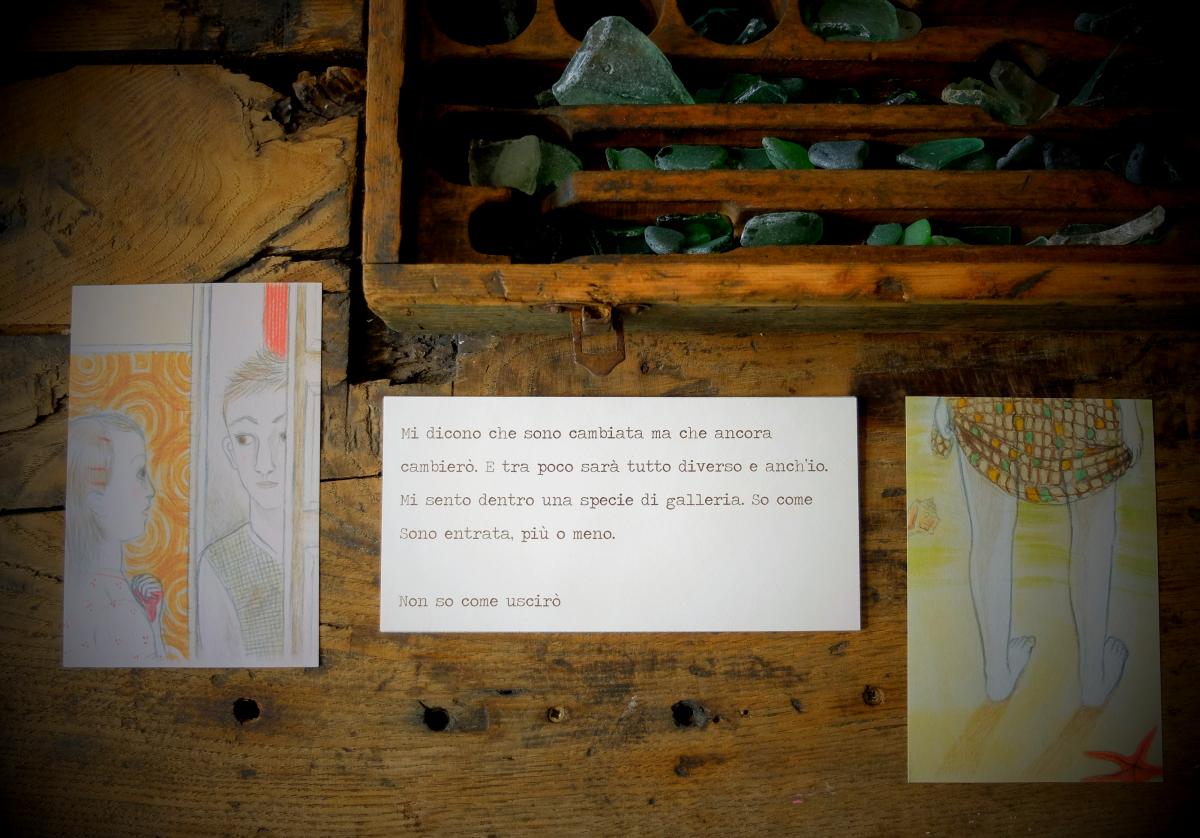 Mi dicono che sono cambiata ma che ancora
cambierò. E tra poco sarà tutto diverso e anch'io.
Mi sento dentro una specie di galleria. So come
Sono entrata, più o meno.
Non so come uscirò